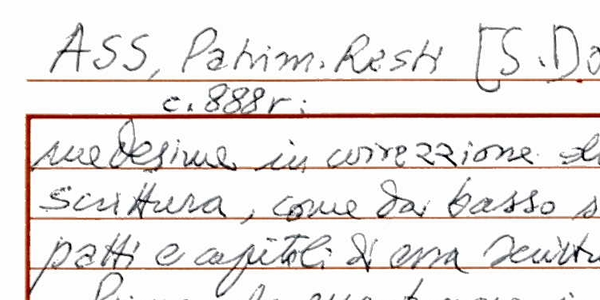 ASS, Patrim. Resti [S. Do
c. 888r:
medesime in correzzione di
scrittura, come da basso s
patti e capitoli di essa scrittu
Prima